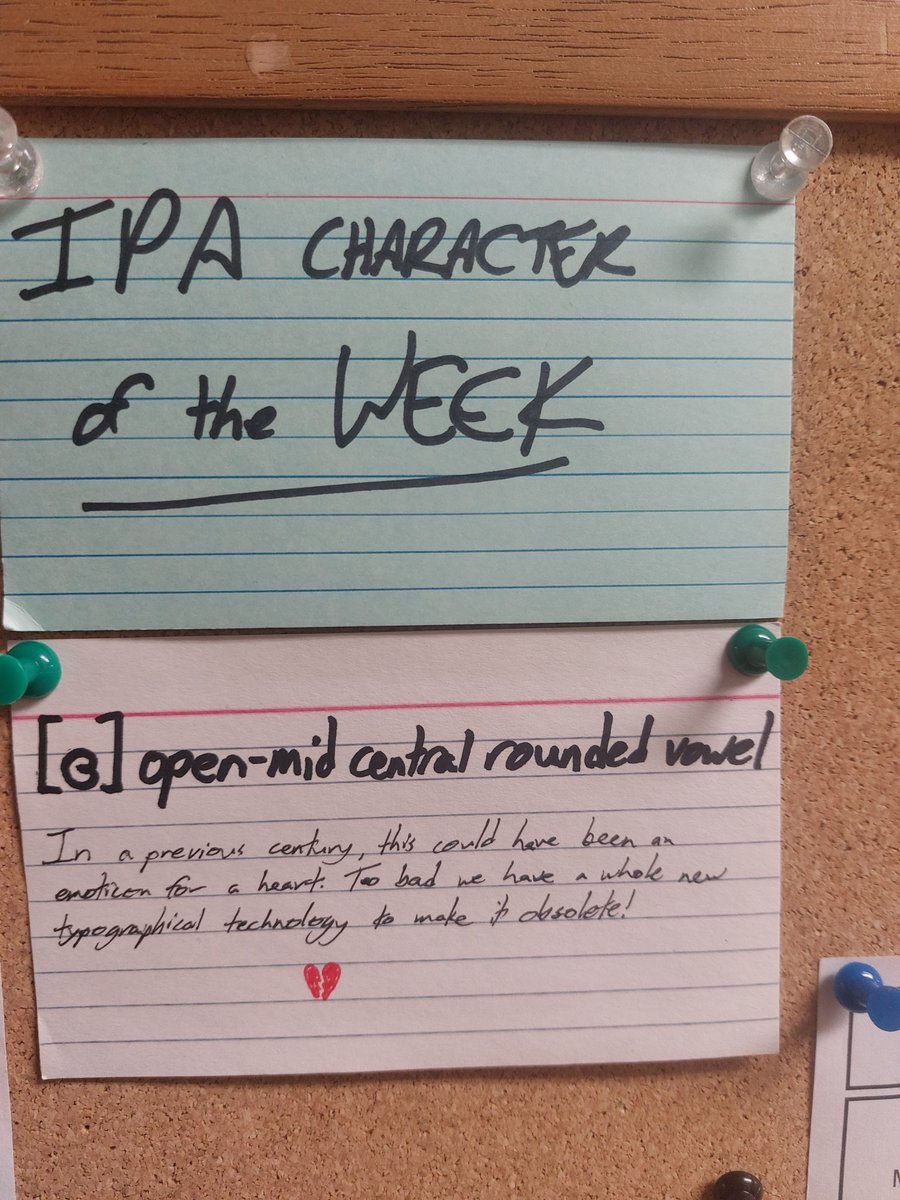 IPA CHARACTER
of the WEEK
[ɞ] open-mid central rounded vowel
In a previous century, this could have been an
emoticon for a heart. Too bad we have a whole new
typographical technology to make it obsolete!